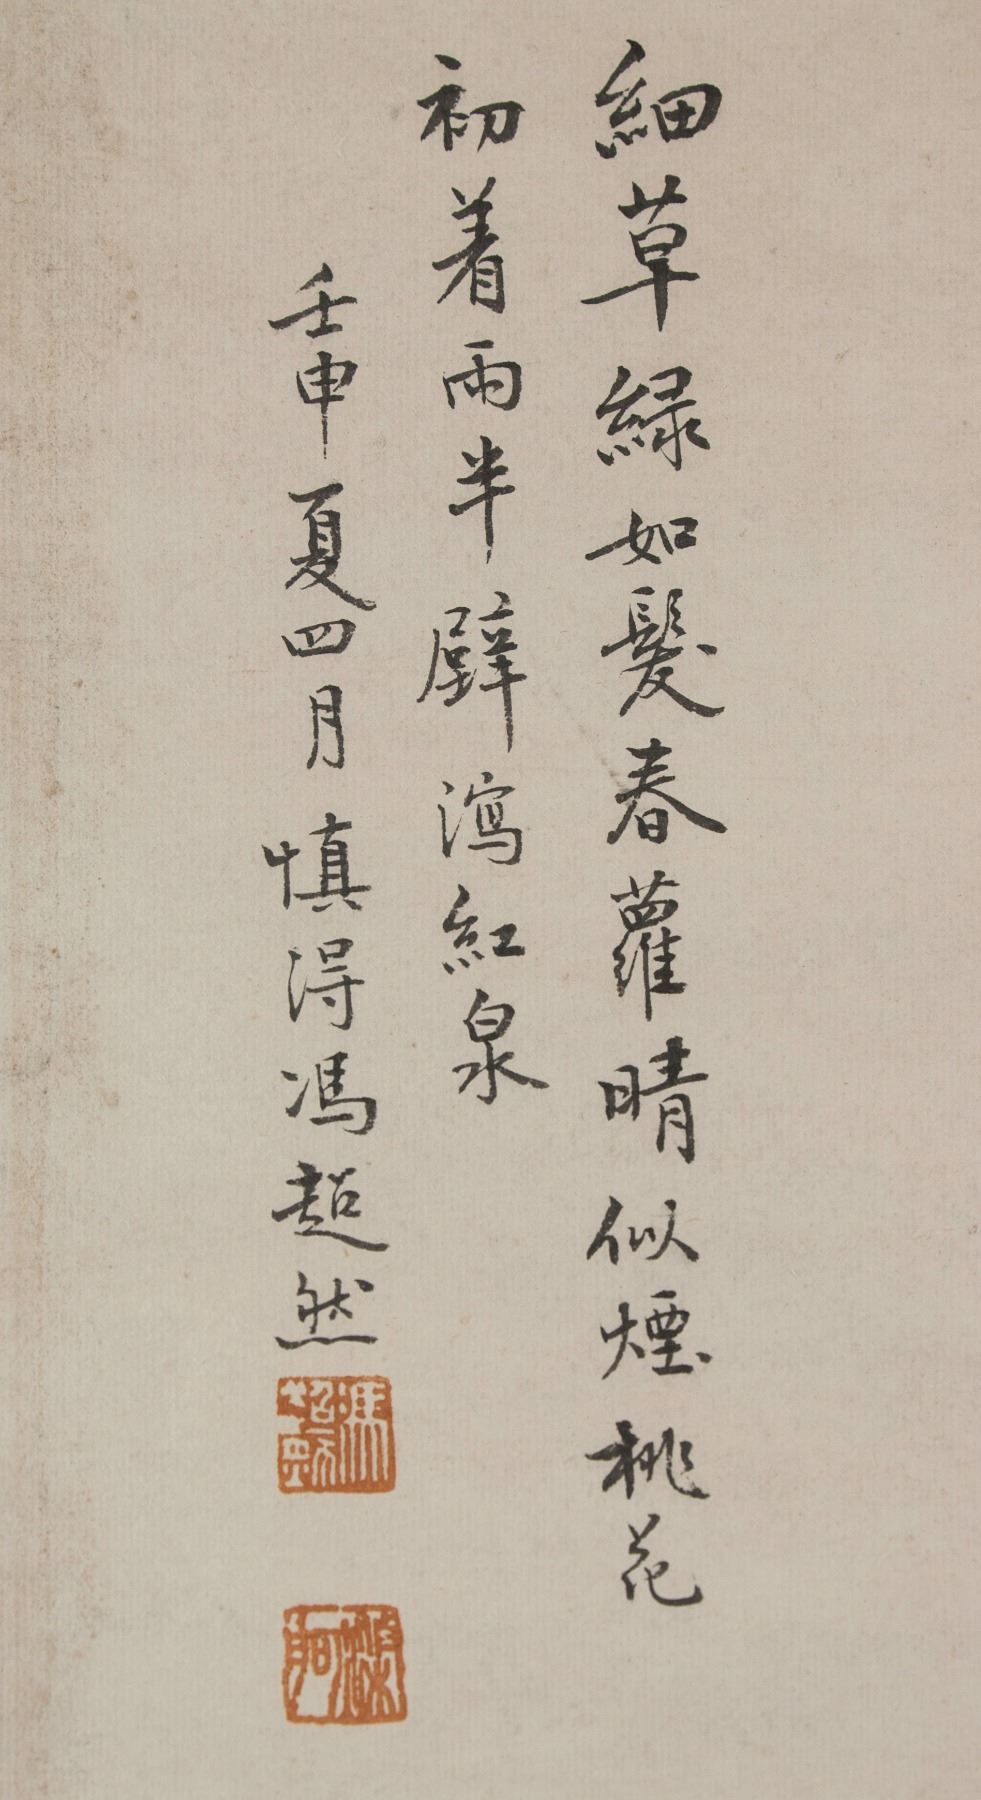 細草緑如髮春蘿晴似煙桃花
初着雨半壁瀉紅泉
壬申夏四月慎得馮超然